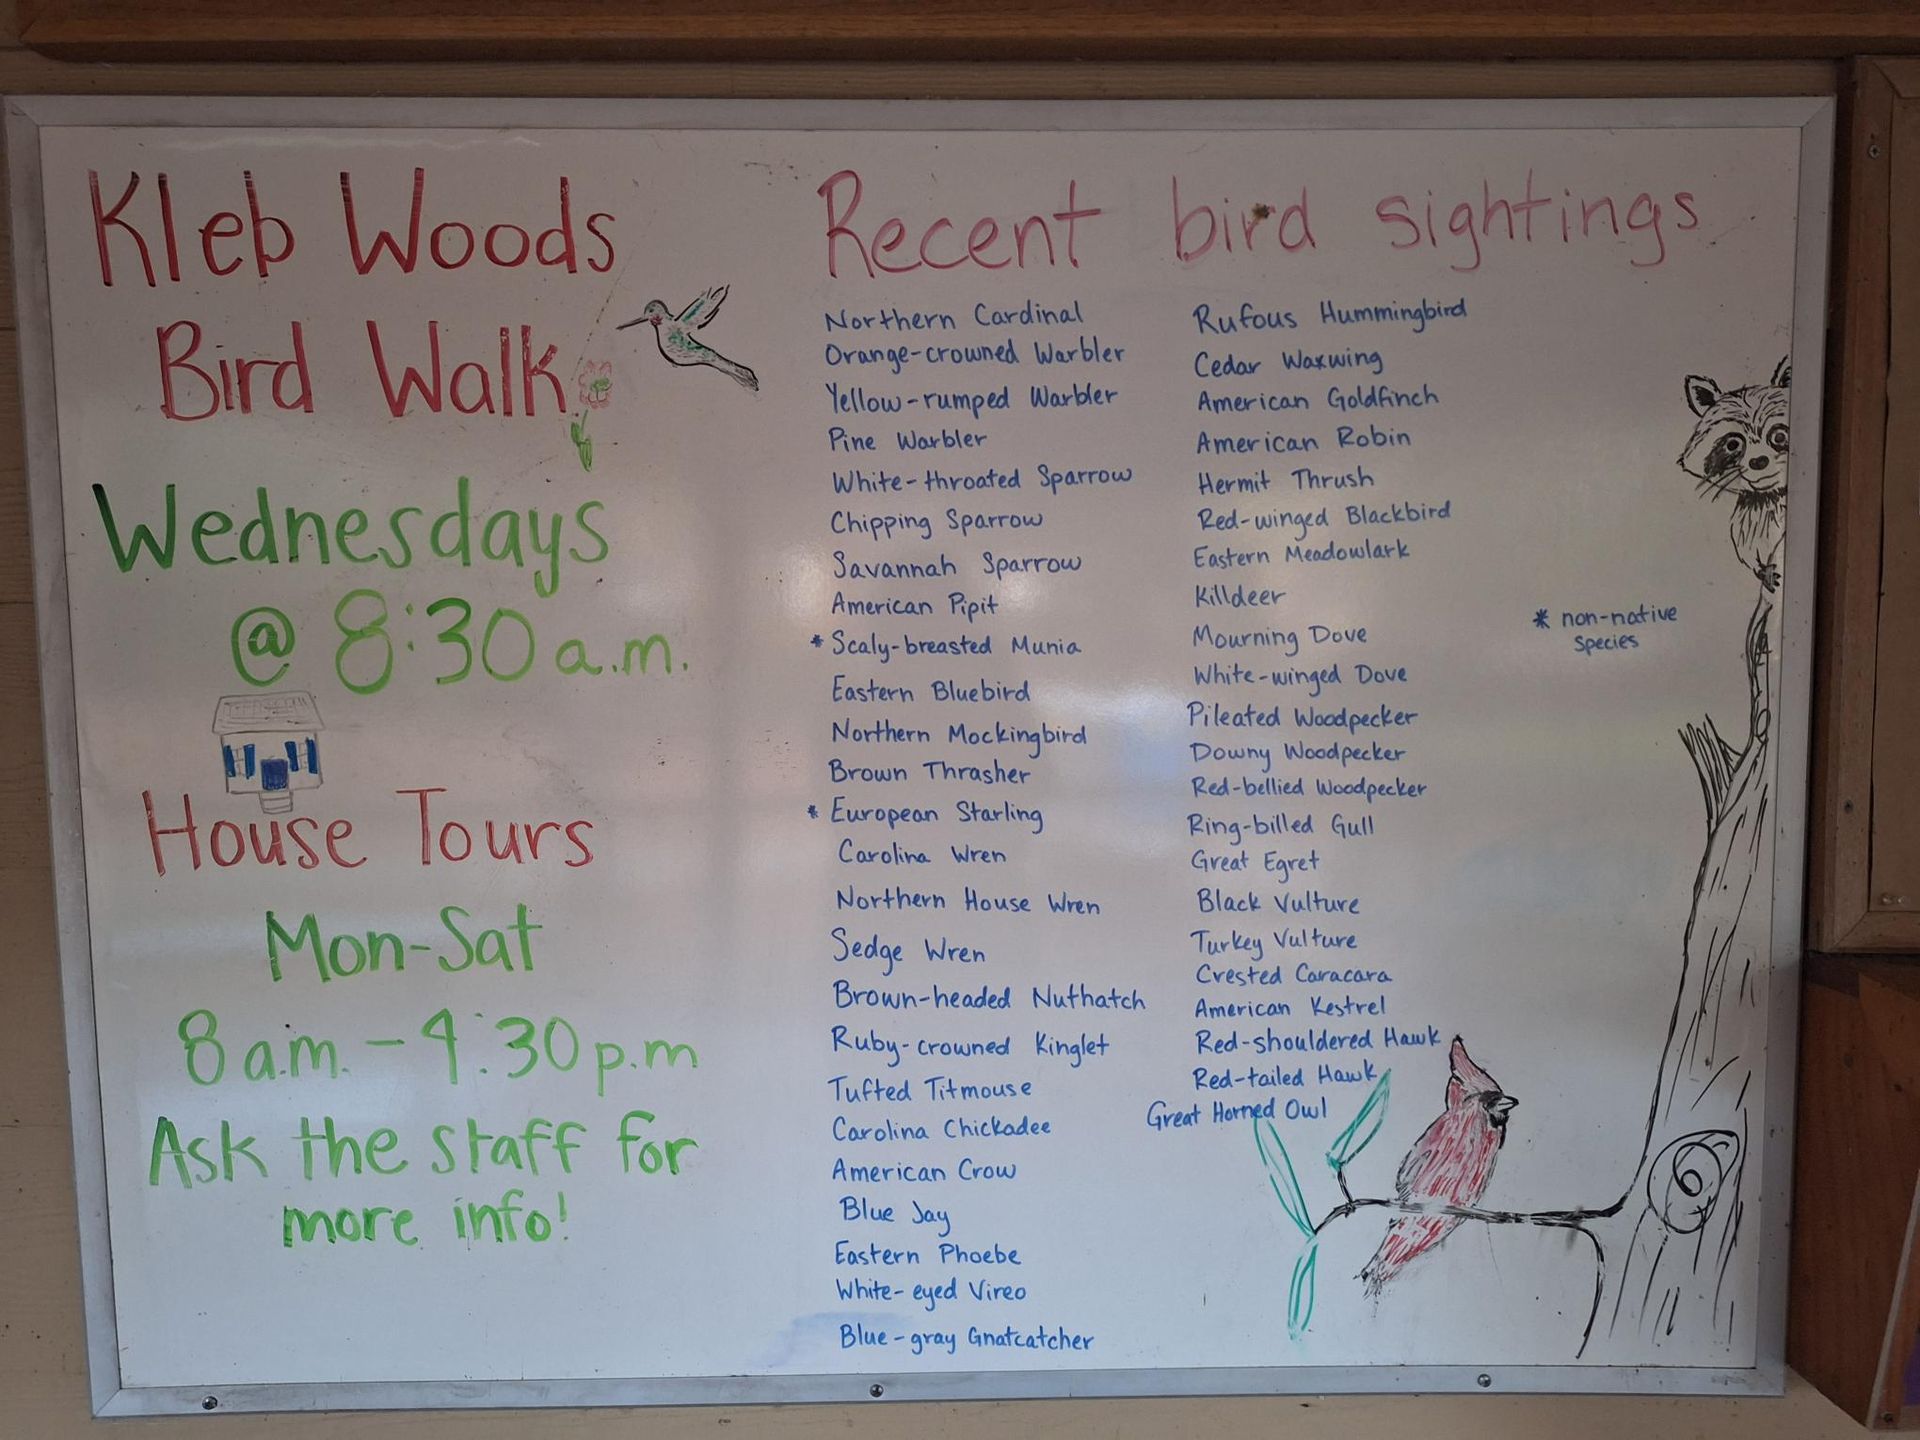 Kleb Woods
Bird Walk
Wednesdays
@ 8:30 a.m.
House Tours
Mon-Sat
8 a.m. - 4:30 p.m
Ask the staff for
more info!
Recent bird sightings
Northern Cardinal
Orange-crowned Warbler
Yellow-rumped Warbler
Pine Warbler
White-throated Sparrow
Chipping Sparrow
Savannah Sparrow
American Pipit
* Scaly-breasted Munia
Eastern Bluebird
Northern Mockingbird
Brown Thrasher
* European Starling
Carolina Wren
Northern House Wren
Sedge Wren
Brown-headed Nuthatch
Ruby-crowned Kinglet
Tufted Titmouse
Carolina Chickadee
American Crow
Blue Jay
Eastern Phoebe
White-eyed Vireo
Blue-gray Gnatcatcher
Rufous Hummingbird
Cedar Waxwing
American Goldfinch
American Robin
Hermit Thrush
Red-winged Blackbird
Eastern Meadowlark
Killdeer
Mourning Dove
White-winged Dove
Pileated Woodpecker
Downy Woodpecker
Red-bellied Woodpecker
Ring-billed Gull
Great Egret
Black Vulture
Turkey Vulture
Crested Caracara
American Kestrel
Red-shouldered Hawk
Red-tailed Hawk
Great Horned Owl
* non-native
species